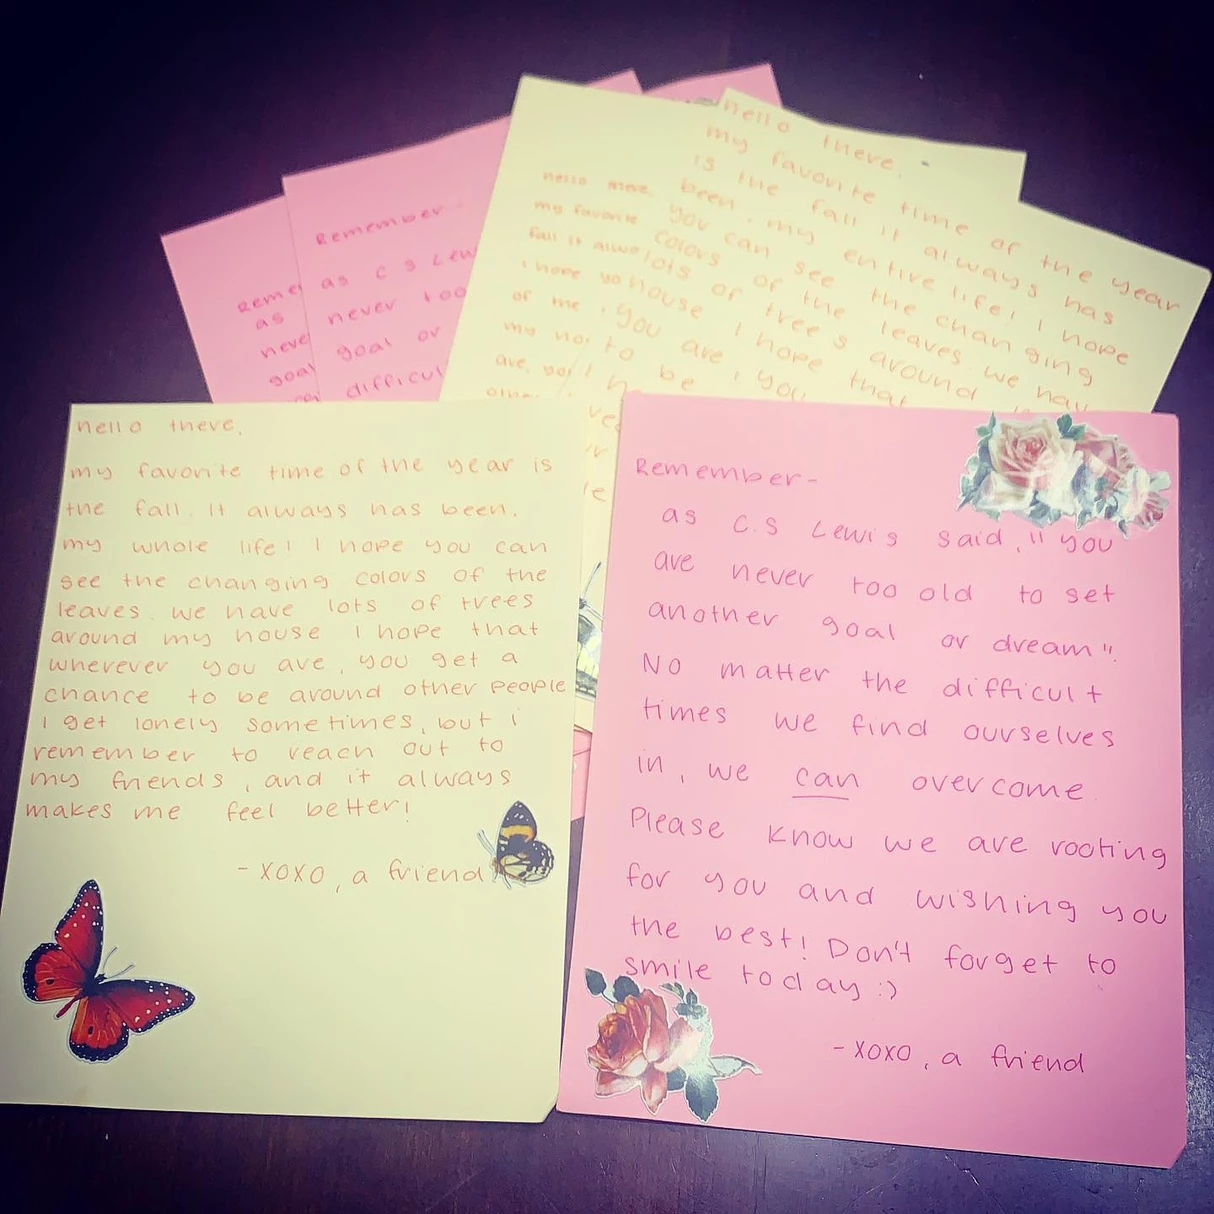 Remember-
as C S Lew
never too
goal or
difficul
Reme
as
neve
goal
hello there,
my favorite
fall it alwa
I hope yo
of me,
my ho
are, yo
othe
hello there.
my favorite time of the year
is the fall it always has
been. my entire life! I hope
you can see the changing
colors of the leaves. we hav
lots of trees around
house I hope that
you are, you
to be
hello there,
my favorite time of the year is
the fall. It always has been.
my whole life! I hope you can
see the changing colors of the
leaves. we have lots of trees
around my house I hope that
wherever you are, you get a
chance to be around other people
I get lonely sometimes, but i
remember to reach out to
my friends, and it always
makes me feel better!
- xoxo, a friend
Remember-
as C.S Lewis said, "you
are never too old to set
another goal or dream".
No matter the difficult
times we find ourselves
in, we can overcome.
Please know we are rooting
for you and wishing you
the best! Don't forget to
smile today :)
- xoxo, a friend